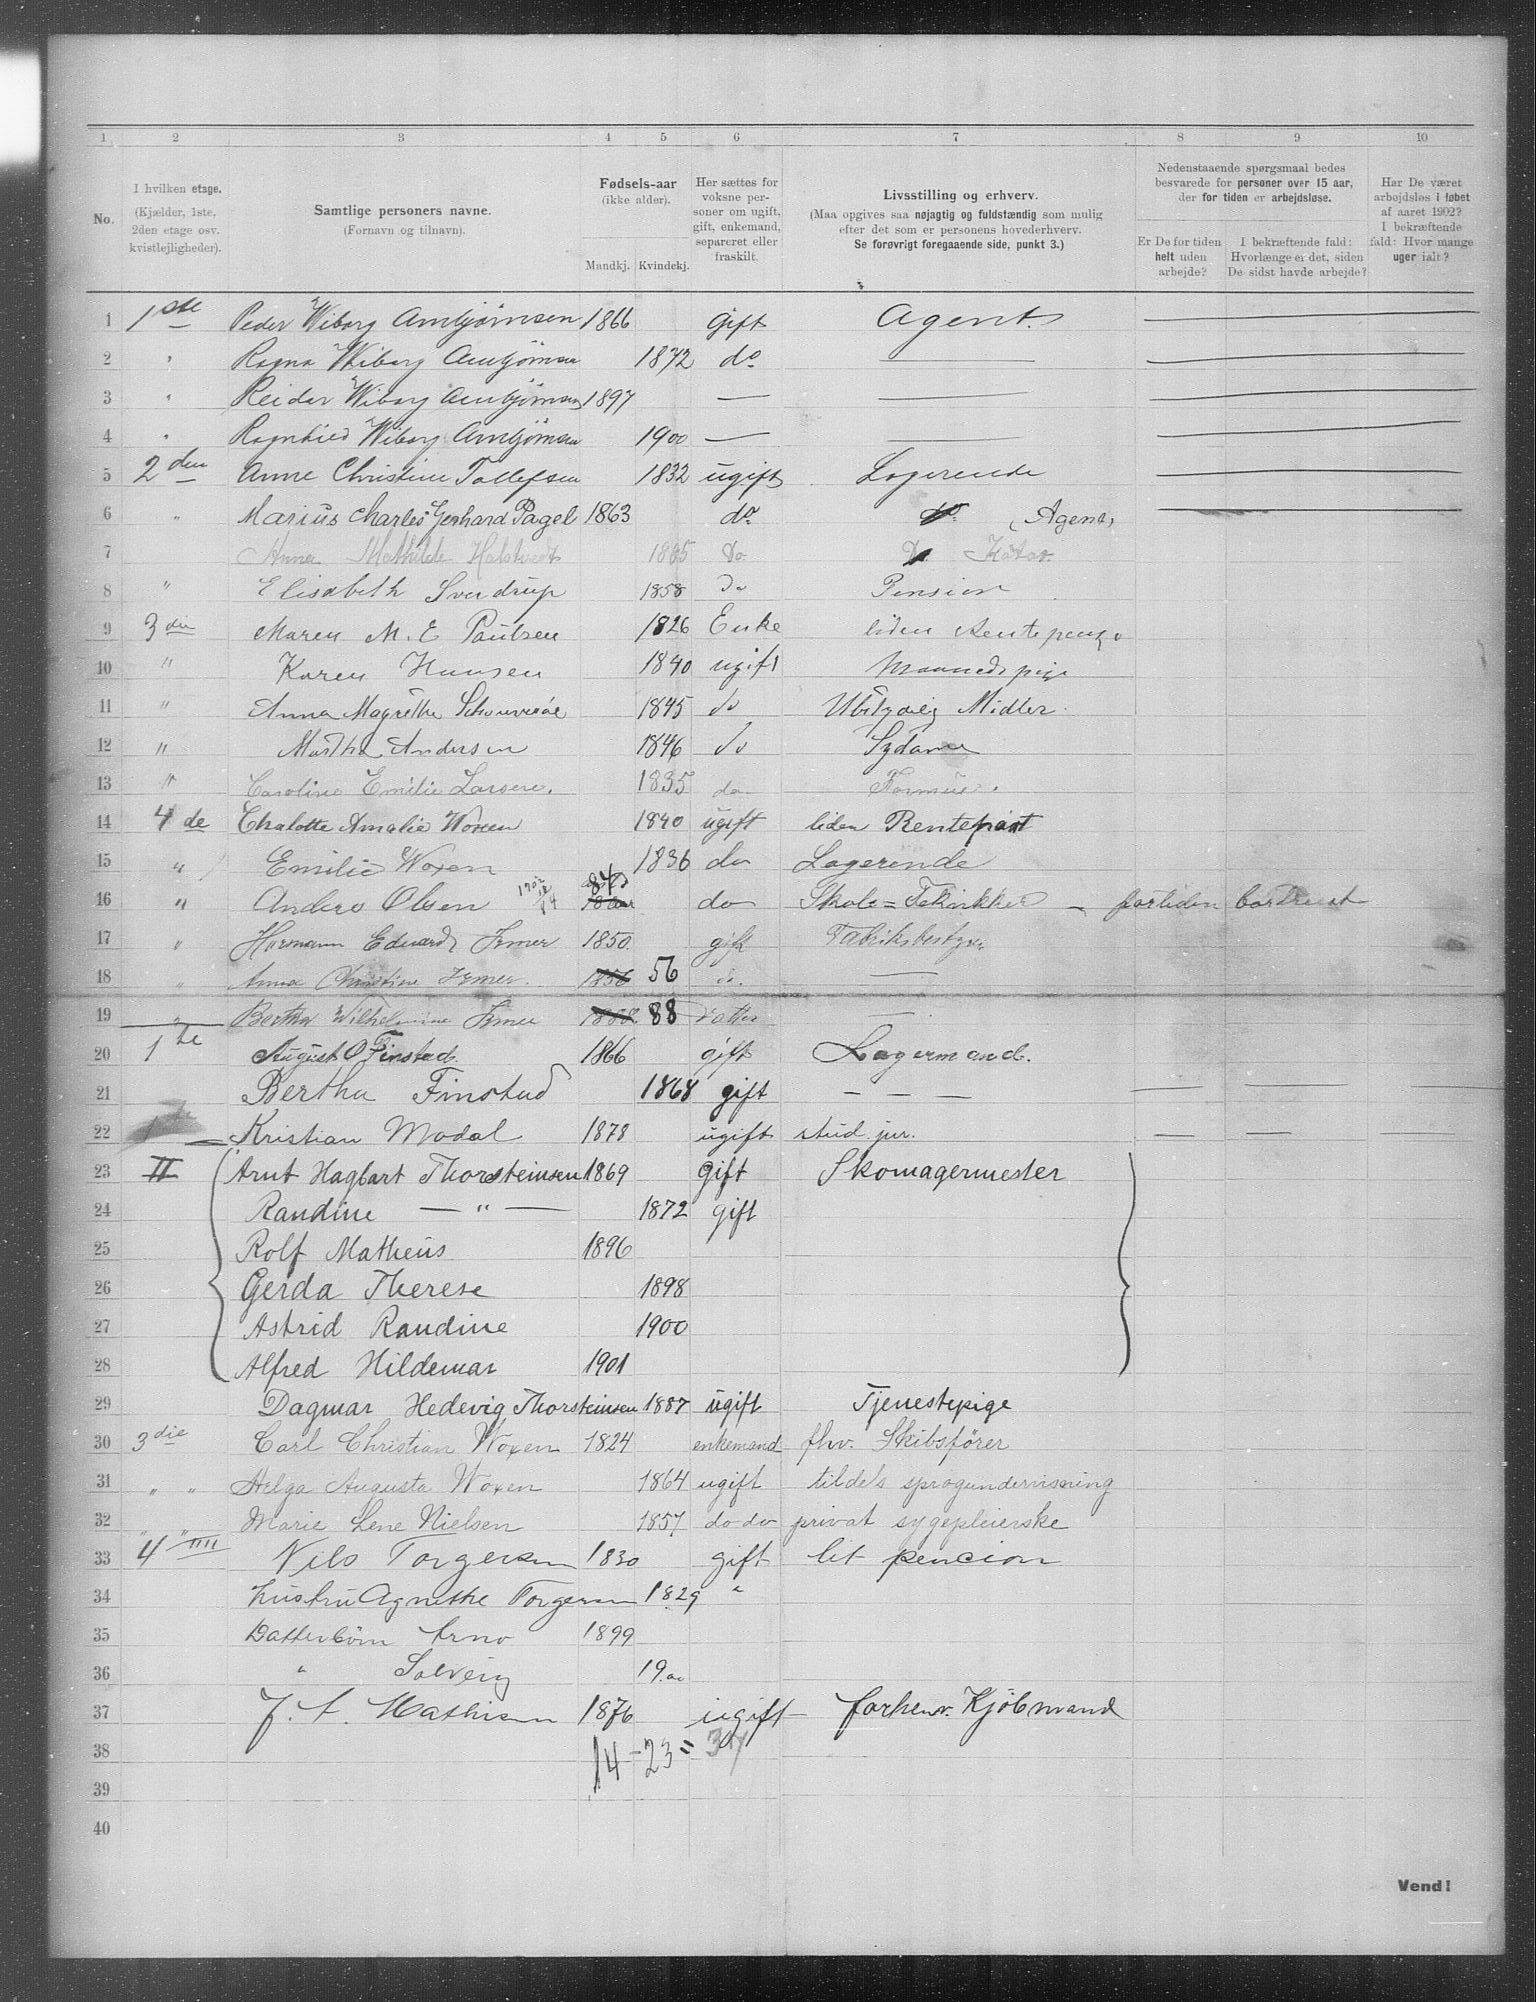 1 2 3 4 5 6 7 8 9 10
No.
I hvilken etage.
(Kjælder, 1ste, 2den etage osv. kvistlejligheder).
Samtlige personers navne.
(Fornavn og tilnavn).
Fødsels-aar
(ikke alder).
Mandkj. Kvindekj.
Her sættes for voksne personer om ugift, gift, enkemand, separeret eller fraskilt.
Livsstilling og erhverv.
(Maa opgives saa nøjagtig og fuldstændig som mulig efter det som er personens hovederhverv.
Se forøvrigt foregaaende side, punkt 3.)
Nedenstaaende spørgsmaal bedes besvarede for personer over 15 aar, der for tiden er arbejdsløse.
Er De for tiden helt uden arbejde?
I bekræftende fald: Hvorlænge er det, siden De sidst havde arbejde?
Har De været arbejdsløs i løbet af aaret 1902? I bekræftende fald: Hvor mange uger ialt?
1 1ste Peder Wiborg Ambjørnsen 1866 gift Agent. —
2 " Ragna Wiborg Ambjørnsen 1872 do — —
3 " Reidar Wiborg Ambjørnsen 1897 — — —
4 " Ragnhild Wiborg Ambjørnsen 1900 — — —
5 2den Anne Christine Tollefsen 1832 ugift Logerende —
6 " Marius Charles Gerhard Pagel 1863 do do (Agent) —
7 Anna Mathilde 1865 Do Do
8 " Elisabeth Sverdrup 1858 Do Pension
9 3die Maren M. E Paulsen 1826 Enke liden Rentepenge
10 " Karen Hansen 1840 ugift Maanedspige
11 " Anna Magrethe 1845 do Midler
12 " Martha Andersen 1846 do Sydame
13 " Caroline Emilie Larsen. 1835 do Formue.
14 4de Chalotte Amalie Woxen 1840 ugift liden Rentepart
15 " Emilie Woxen 1836 do Logerende
16 " Anders Olsen 84 do Skole=Tekniker — fortiden bortreist
17 " Hermann Eduard Irmer 1850. gift Fabriksbestyr.
18 " Anna Christine Irmer. 1856 56 do. —
19 " Bertha Wilhelmine Irmer 1888 88 Datter —
20 1te August O Finstad. 1866 gift Lagermand.
21 Bertha Finstad 1868 gift — — — — —
22 1te Kristian Modal 1878 ugift stud. jur. — — —
23 II Arnt Hagbart Thorsteinsen 1869 gift Skomagermester
24 Randine — " — 1872 gift
25 Rolf Matheus 1896
26 Gerda Therese 1898
27 Astrid Randine 1900
28 Alfred Hildemar 1901
29 Dagmar Hedevig Thorsteinsen 1887 ugift Tjenestepige
30 3die Carl Christian Woxen 1824 enkemand fhv. Skibsfører
31 " " Helga Augusta Woxen 1864 ugift tildels sprogundervisning
32 " " Marie Lene Nielsen 1857 do do privat sygepleierske
33 4 "" Nils Torgersen 1830 gift lit pencion
34 hustru Agnethe Torgersen 1829 "
35 Datterbørn Arno 1899
36 " Solveig 1900
37 J. A. Mathisen 1876 ugift forhenv. Kjøbmand
38 14 – 23 = 37
39
40
Vend!